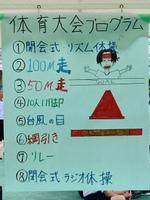 体育大会プログラム
①開会式 リズム体操
②100M走
③50M走
GOAL
④10人11脚
⑤台風の目
⑥綱引き
⑦リレー
⑧閉会式 ラジオ体操